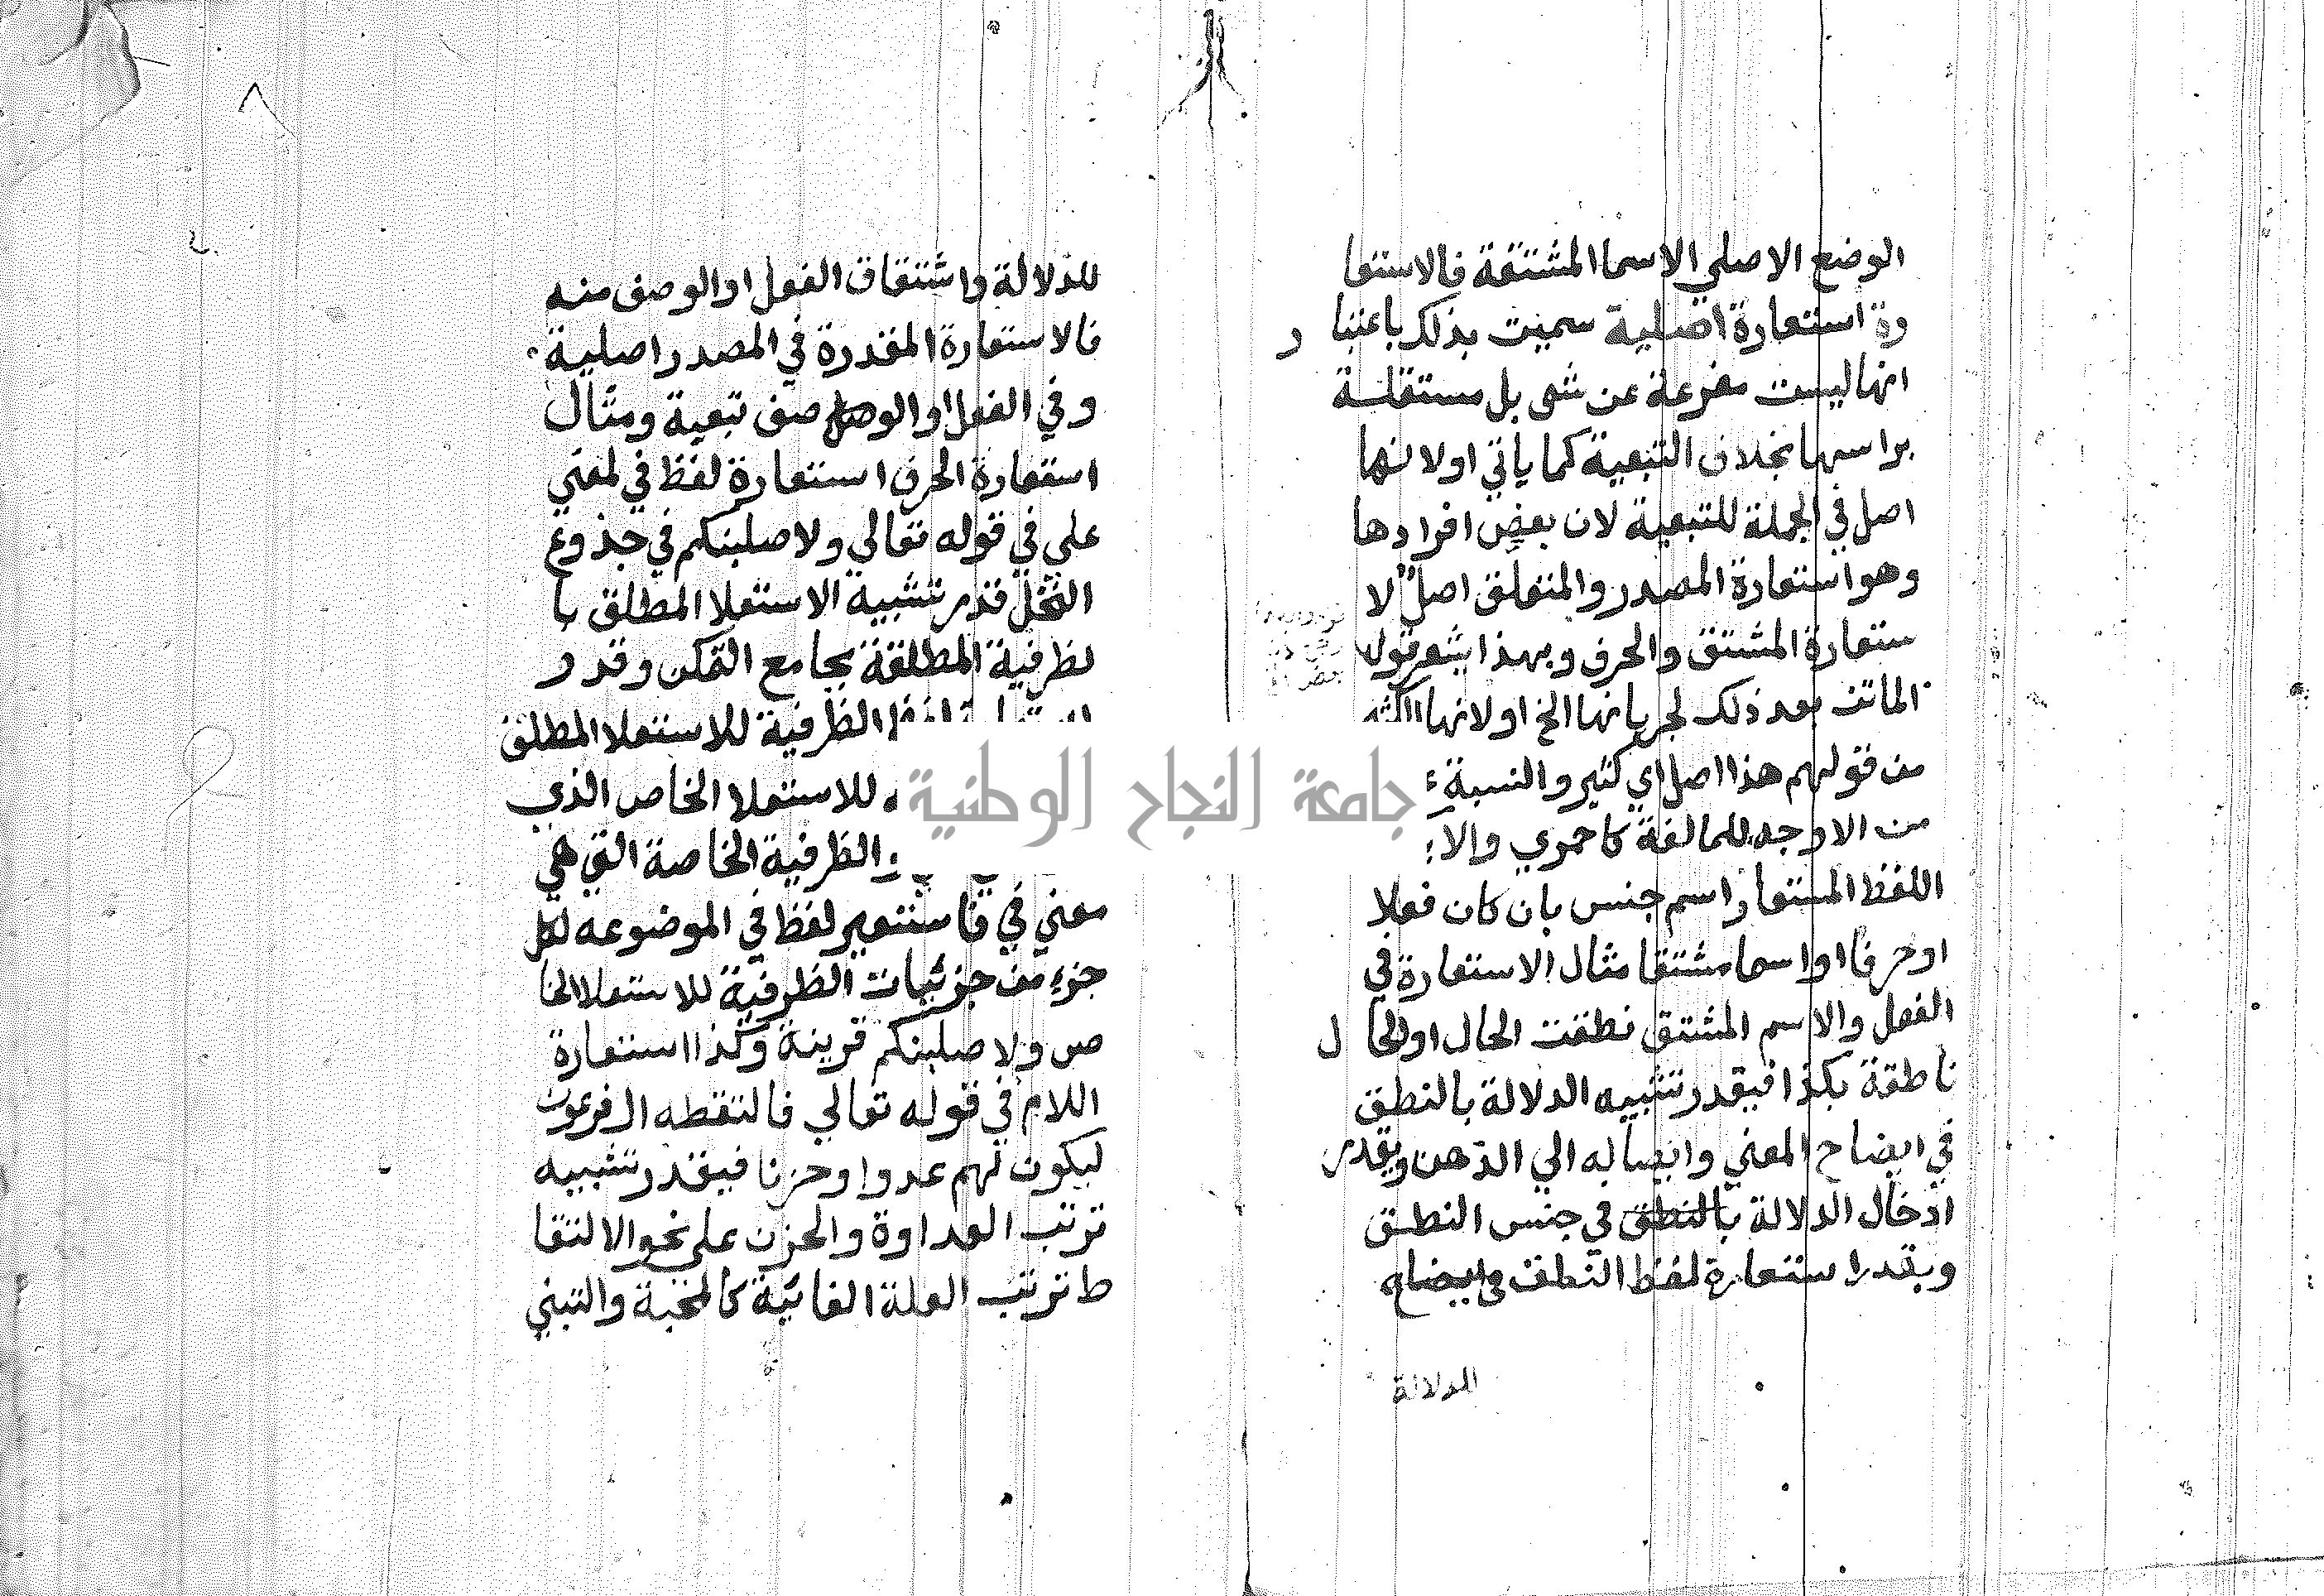 الوضع الاصلي الاسما المشتقة فالاستعا
رة استعارة اصلية سميت بذلك باعتبا ر
انها ليست مفرعة عن شي بل مستقلة
براسها بخلاف التبعية كما ياتي او لانها
اصل في الجملة للتبعية لان بعض افرادها
وهو استعارة المصدر والمتعلق اصل لا
ستعارة المشتق والحرف وبهذا يشعر قول
الماتن بعد ذلك لجريانها الخ او لانها اكثر
من قولهم هذا اصل اي كثير والنسبة
من الاوجه للمبالغة كاحمري والا
اللفظ المستعار اسم جنس بان كان فعلا
او حرفا او اسما مشتقا مثال الاستعارة في
الفعل والاسم المشتق نطقت الحال او الحا ل
ناطقة بكذا فيقدر تشبيه الدلالة بالنطق
في ايضاح المعني وايصاله الي الذهن ويقدر
ادخال الدلالة بالنطق في جنس النطق
ويقدر استعارة لفظ النطق وايضاح
للدلالة
للدلالة واشتقاق الفعل او الوصف منه
فالاستعارة المقدرة في المصدر اصلية
وفي الفعل او الوصف تبعية ومثال
استعارة الحرف استعارة لفظ في لمعني
علي في قوله تعالي ولاصلبنكم في جذوع
النخل قدر تشبيه الاستعلا المطلق با
لظرفية المطلقة بجامع التمكن وقد ر
الظرفية للاستعلا المطلق
للاستعلا الخاص الذي
الظرفية الخاصة التي هي
معني في فاستعير لفظ في الموضوعه لكل
جزء من جزئيات الظرفية للاستعلا الخا
ص ولاصلبنكم قرينة وكذا استعارة
اللام في قوله تعالي فالتقطه ال فرعون
ليكون لهم عدوا وحزنا فيقدر تشبيه
ترتب العداوة والحزن علي نحو الالتقا
ط ترتب العلة الغائية كالمحبة والتبني
جامعة النجاح الوطنية